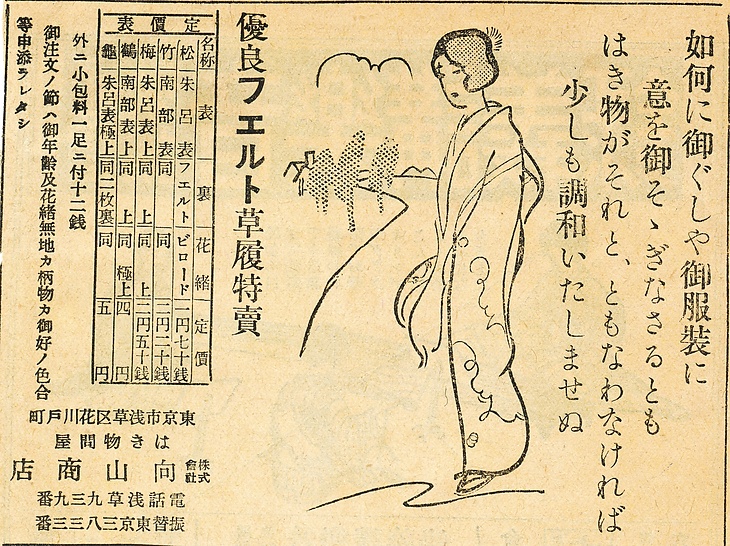 如何に御ぐしや御服装に
意を御そゝぎなさるとも
はき物がそれと、ともなわなければ
少しも調和いたしませぬ
優良フエルト草履特賣
定價表
名称 表 裏 花緒 定價
松 朱呂表 フエルト ビロード 一円七十銭
竹 南部表 同 同 二円二十銭
梅 朱呂表上 同上 同上 二円五十銭
鶴 南部表上 同上 同極上 四円
龜 朱呂表極上 同二枚裏 同 五円
外ニ小包料一足ニ付十二銭
御注文ノ節ハ御年齢及花緒無地カ柄物カ御好ノ色合
等申添ラレタシ
東京市浅草区花川戸町
はき物問屋
株式會社 向山商店
電話浅草九三九番
振替東京三八三三番